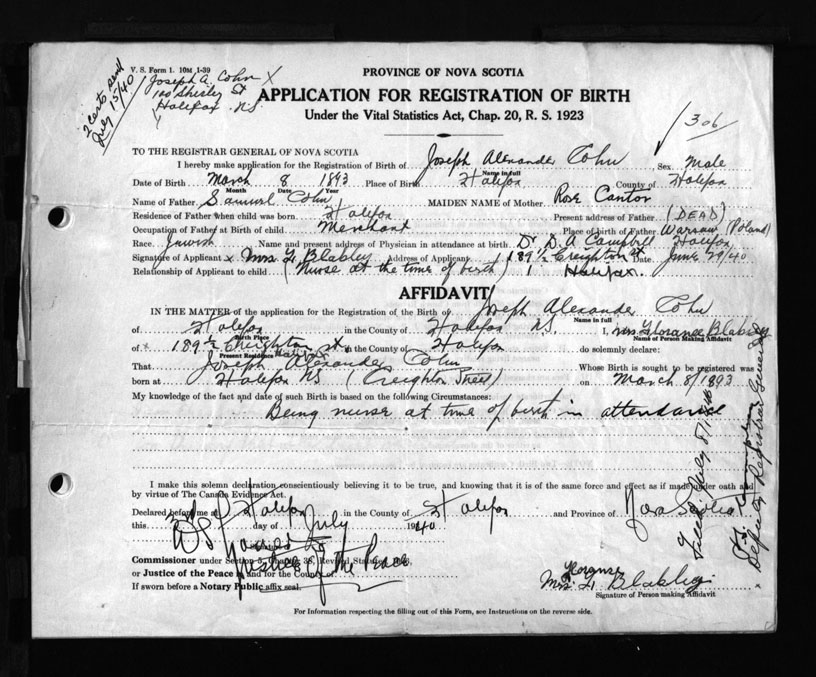 V. S. Form 1. 10M 1-39
2 certs send
July 15/40
Joseph A. Cohn X
100 Shirley St
Halifax N.S.
PROVINCE OF NOVA SCOTIA
APPLICATION FOR REGISTRATION OF BIRTH
Under the Vital Statistics Act, Chap. 20, R. S. 1923
306
TO THE REGISTRAR GENERAL OF NOVA SCOTIA
I hereby make application for the Registration of Birth of Joseph Alexander Cohn Sex Male
Name in full
Date of Birth March 8 1893 Place of Birth Halifax County of Halifax
Month Date Year
Name of Father Samuel Cohn MAIDEN NAME of Mother Rose Cantor
Residence of Father when child was born Halifax Present address of Father (DEAD)
Occupation of Father at Birth of child Merchant Place of birth of Father Warsaw (Poland)
Race Jewish Name and present address of Physician in attendance at birth Dr D. A Campbell Halifax
Signature of Applicant x Mrs F. Blakley Address of Applicant 189½ Creighton St Date June 29/40
Relationship of Applicant to child (Nurse at the time of birth) Halifax.
AFFIDAVIT
IN THE MATTER of the application for the Registration of the Birth of Joseph Alexander Cohn
Name in full
of Halifax in the County of Halifax N.S. I, Mrs Florance Blakley
Birth Place
Name of Person Making Affidavit
of 189½ Creighton St. Halifax in the County of Halifax do solemnly declare:
Present Residence
That Joseph Alexander Cohn Whose Birth is sought to be registered was
born at Halifax NS (Creighton Street) on March 8/1893
My knowledge of the fact and date of such Birth is based on the following Circumstances:
Being nurse at time of birth in attendance
I make this solemn declaration conscientiously believing it to be true, and knowing that it is of the same force and effect as if made under oath and
by virtue of The Canada Evidence Act.
Declared before me at Halifax in the County of Halifax and Province of Nova Scotia
this 2nd day of July 1940
Justice of the Peace
Commissioner under Section 5, Chapter 38, Revised Statutes
or Justice of the Peace in and for the County of
If sworn before a Notary Public affix seal.
Florance
Mrs. F. Blakley
Signature of Person making Affidavit
For Information respecting the filling out of this Form, see Instructions on the reverse side.
Filed: July
Deputy Registrar General